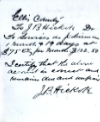 Ellis County
To J B Hickok Dr
To Services as policeman
1 month & 19 days at
$75.00 per month
I certify that the above
account is correct and
remains due and unpaid
J B Hickok